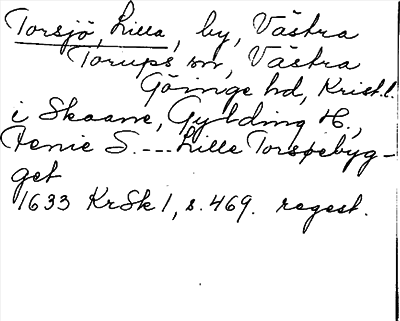 Torsjö, Lilla, by, Västra
Torups sn, Västra
Göinge hd, Krist.l.
i Skaane, Gylding H.,
Fenie S. --- Lille Torsøebyg-
get
1633 KrSk 1, s. 469. regest.